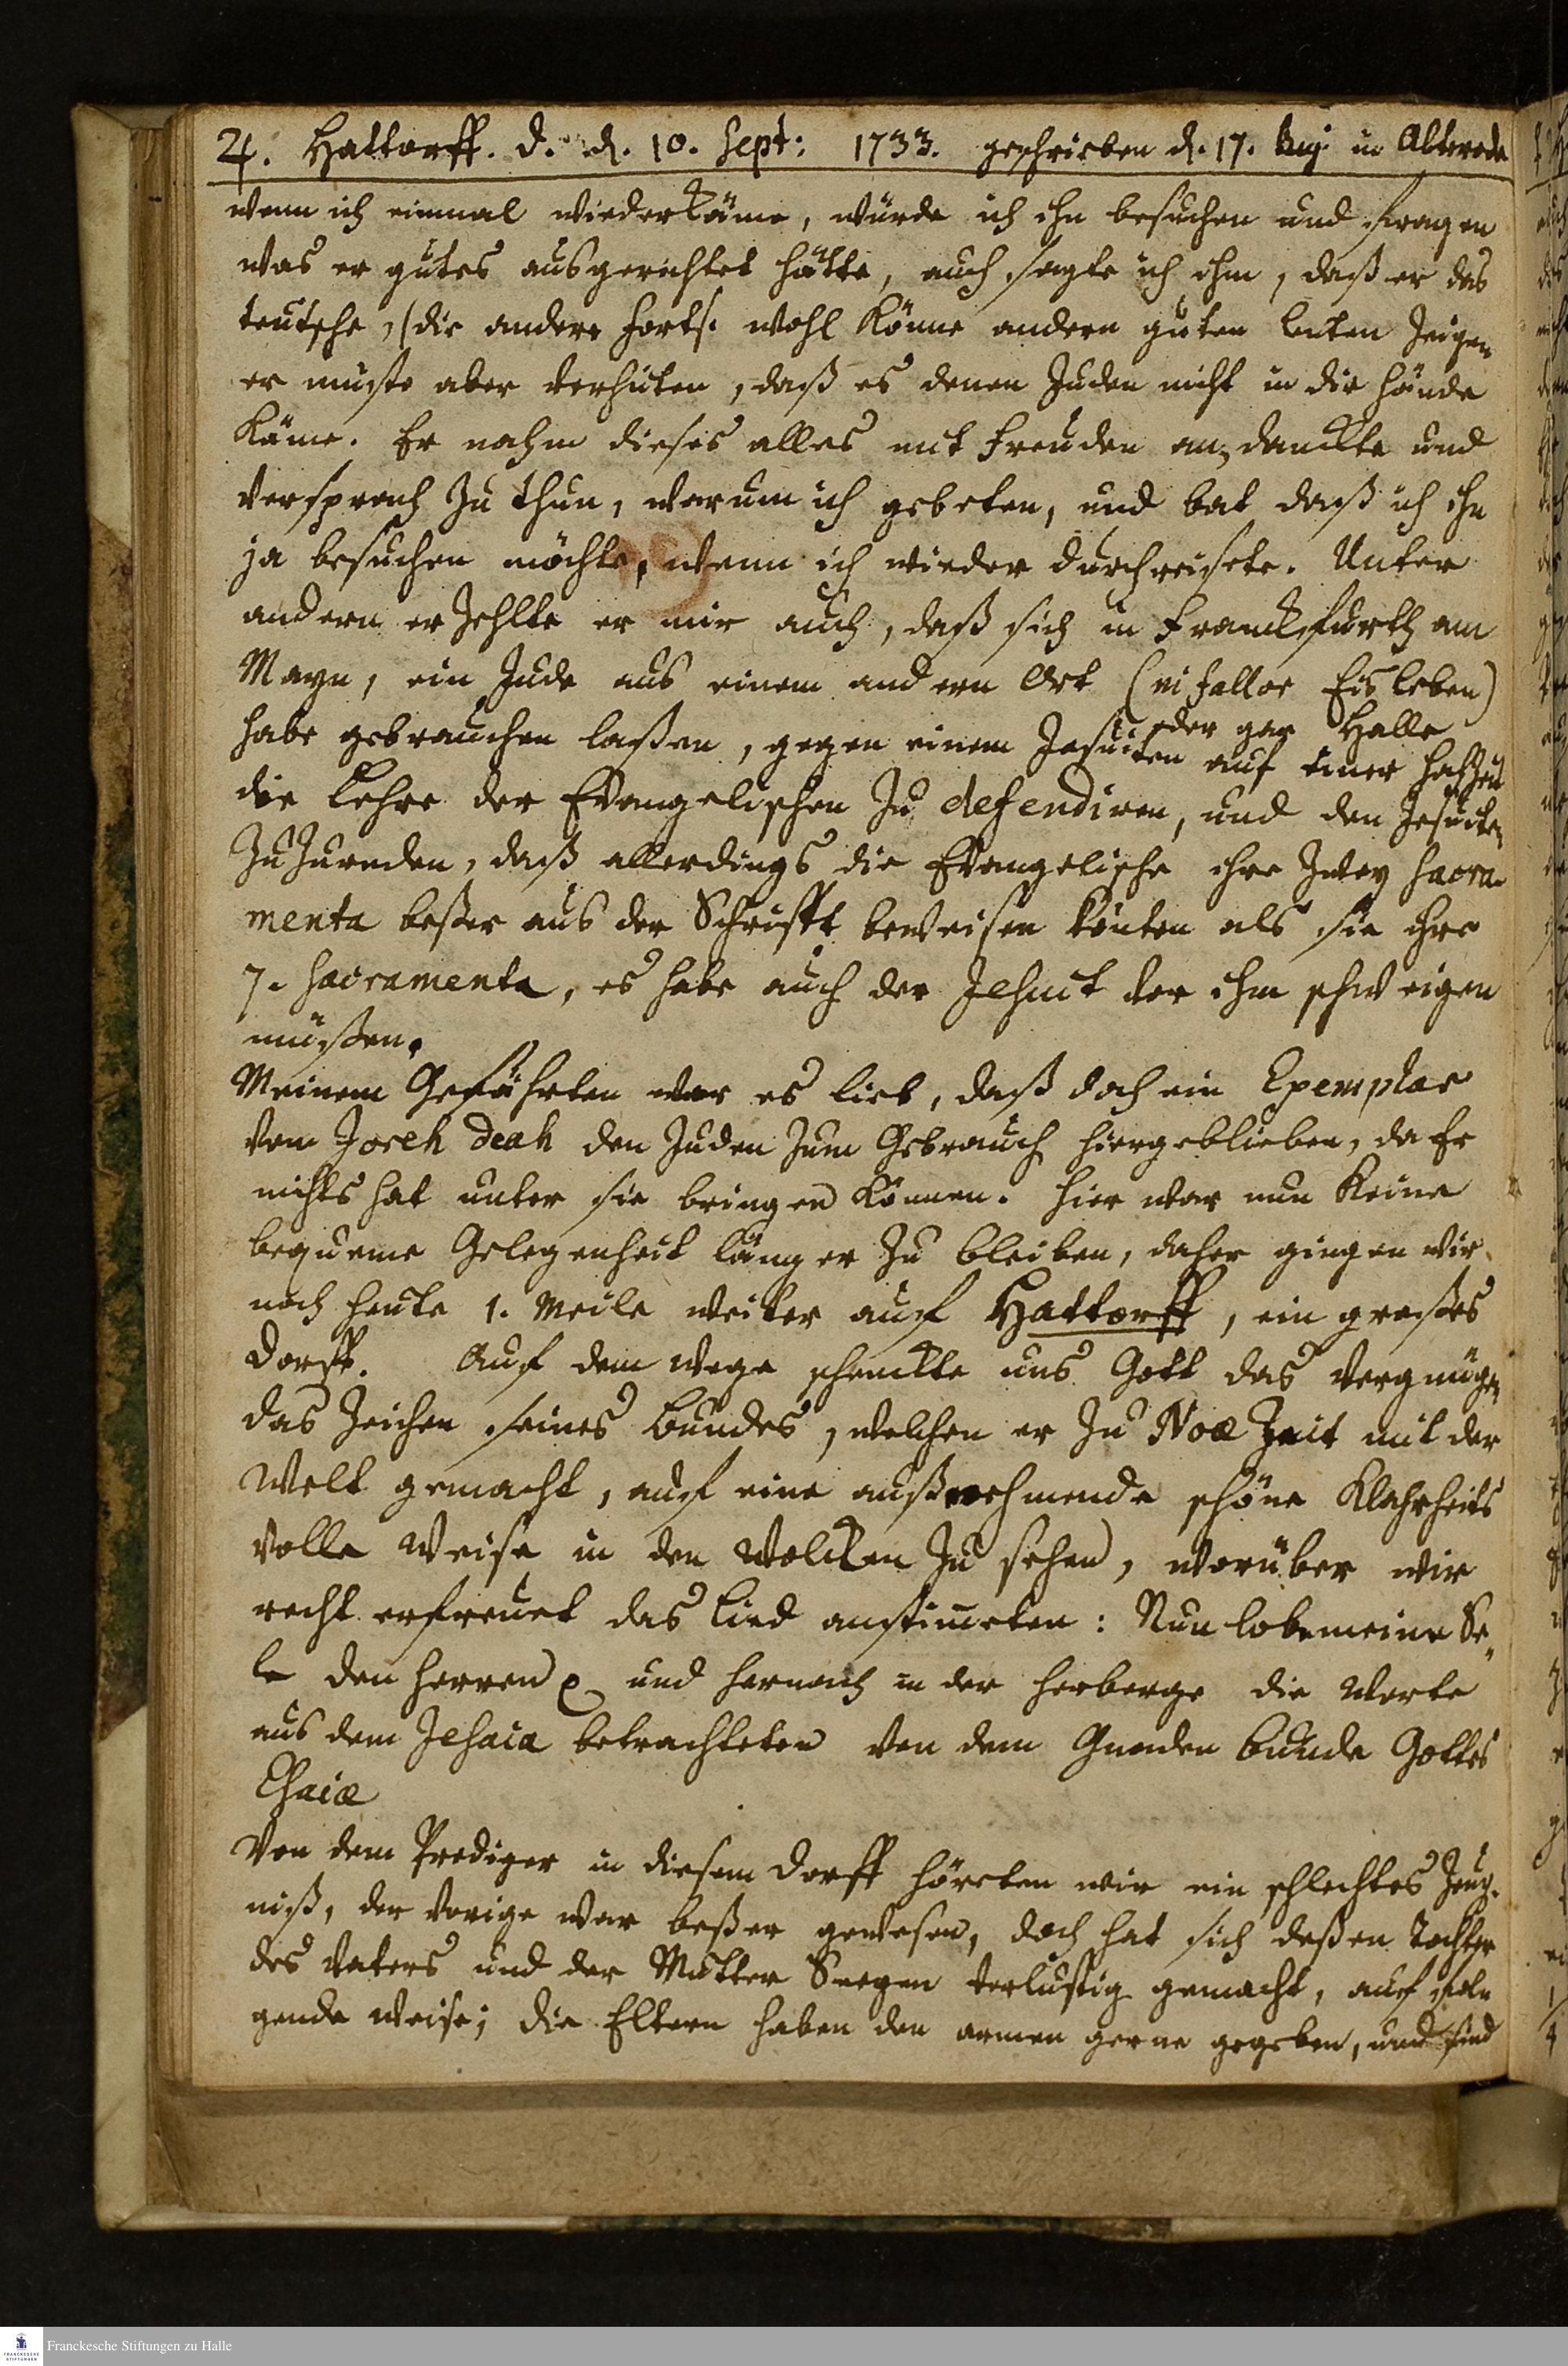 ♃. Hattorff. d. 10. Sept: 1733. geschrieben d. 17. in Abterode
wenn ich einmal wiederkäme, würde ich ihn besuchen und fragen
was er gutes ausgerichtet hätte, auch sagte ich ihm, daß er das
teutsche, (die andere Forts. wohl könne andern guten leuten zeigen
er müste aber verhüten, daß es denen Juden nicht in die hände
käme. Er nahm dieses alles mit Freuden an, danckte und
versprach zu thun, warum ich gebeten, und bat daß ich ihn
ja besuchen möchte, wenn ich wieder durchreisete. Unter
andern erzehlte er mir auch, daß sich in Franckfurth am
Mayn, ein Jude aus einem andern Ort (ni fallor Eisleben)
oder gar Halle
habe gebrauchen laßen, gegen einem Jesuiten auf einer
die Lehre der Evangelischen zu defendiren, und den Jesuiten
zuzureden, daß allerdings die Evangelische ihre zwey Sacra-
menta beßer aus der Schrifft beweisen könten als sie ihre
7. Sacramenta, es habe auch der Jesuit vor ihm schweigen
müßen.
Meinem Gefährten war es lieb, daß doch ein Exemplar
vom Joreh Deah den Juden zum Gebrauch hiergeblieben, da Er
nichts hat unter sie bringen können. Hier war nun keine
bequeme Gelegenheit länger zu bleiben, daher gingen wir
noch heute 1. Meile weiter auf Hattorff, ein großes
Dorff. Auf dem wege schenckte uns Gott das Vergnügen
das Zeichen seines Bundes, welchen er zu Noæ Zeit mit der
Welt gemacht, auf eine außnehmende schöne Klahrheits
volle Weise in den Wolcken zu sehen, worüber wir
recht erfreuet das Lied anstimeten: Nun lob meine See„
le den Herren und hernach in der Herberge die Worte
aus dem Jesaia betrachteten von dem Gnaden bunde Gottes
Esaiæ
Von dem Prediger in diesem Dorff höreten wir ein schlechtes Zeug-
niß, der vorige war beßer gewesen, doch hat sich deßen Tochter
des Vaters und der Mutter Seegen verlustig gemacht, auf fol-
gende weise; die Eltern haben den armen gerne gegeben, und sind
Franckesche Stiftungen zu Halle